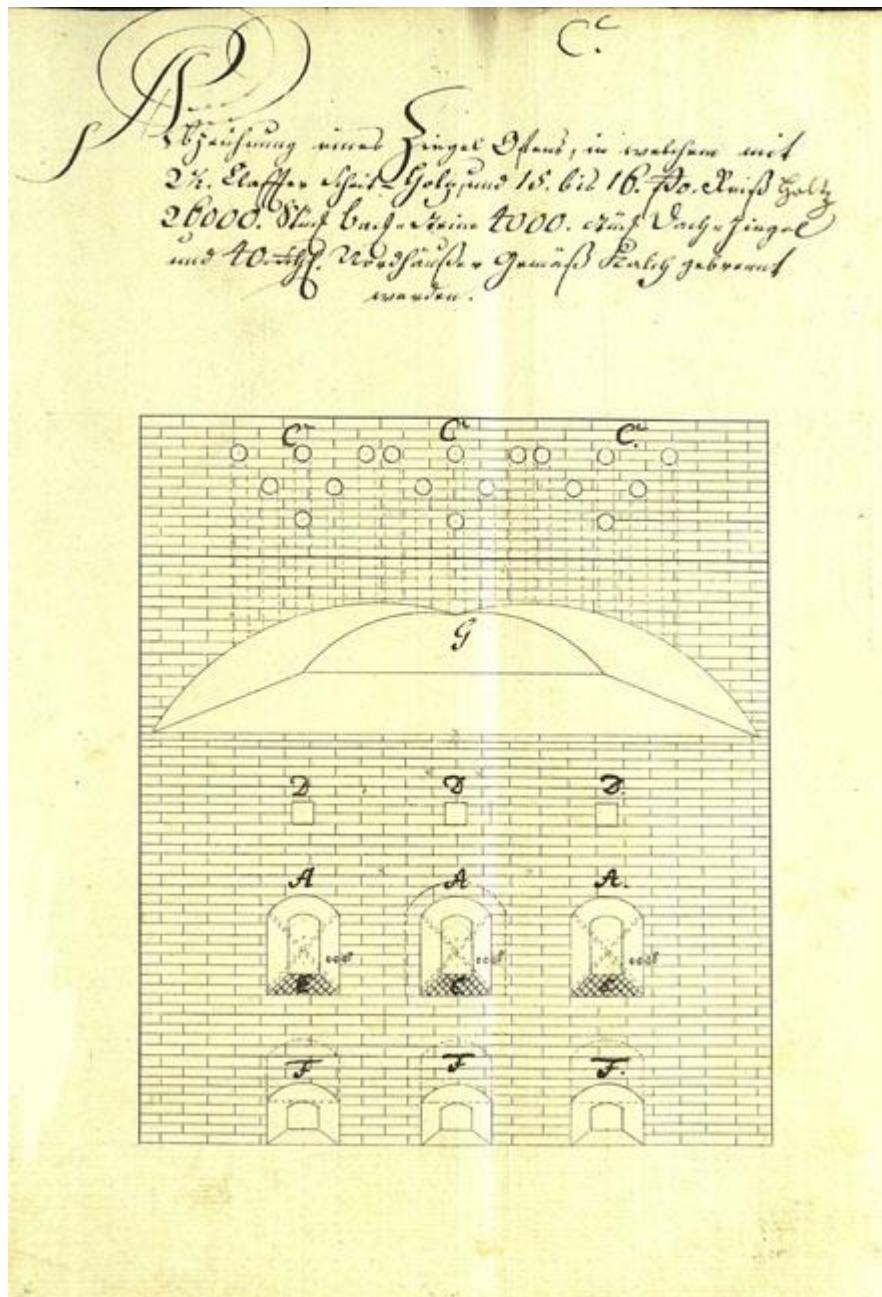 C.c
Abzeichnung eines Ziegel Ofens, in welchem mit
2½. Claffter Scheit-Holtz, und 15. bis 16. ßo. Reiß Holtz
26000. Stück Back-Steine 4000. Stück Dach-Ziegel
und 40. Nordhäußer Gemäß Kalch gebrennt
werden.
C C C.
G
D D D.
A A A.
E E E
F F F.